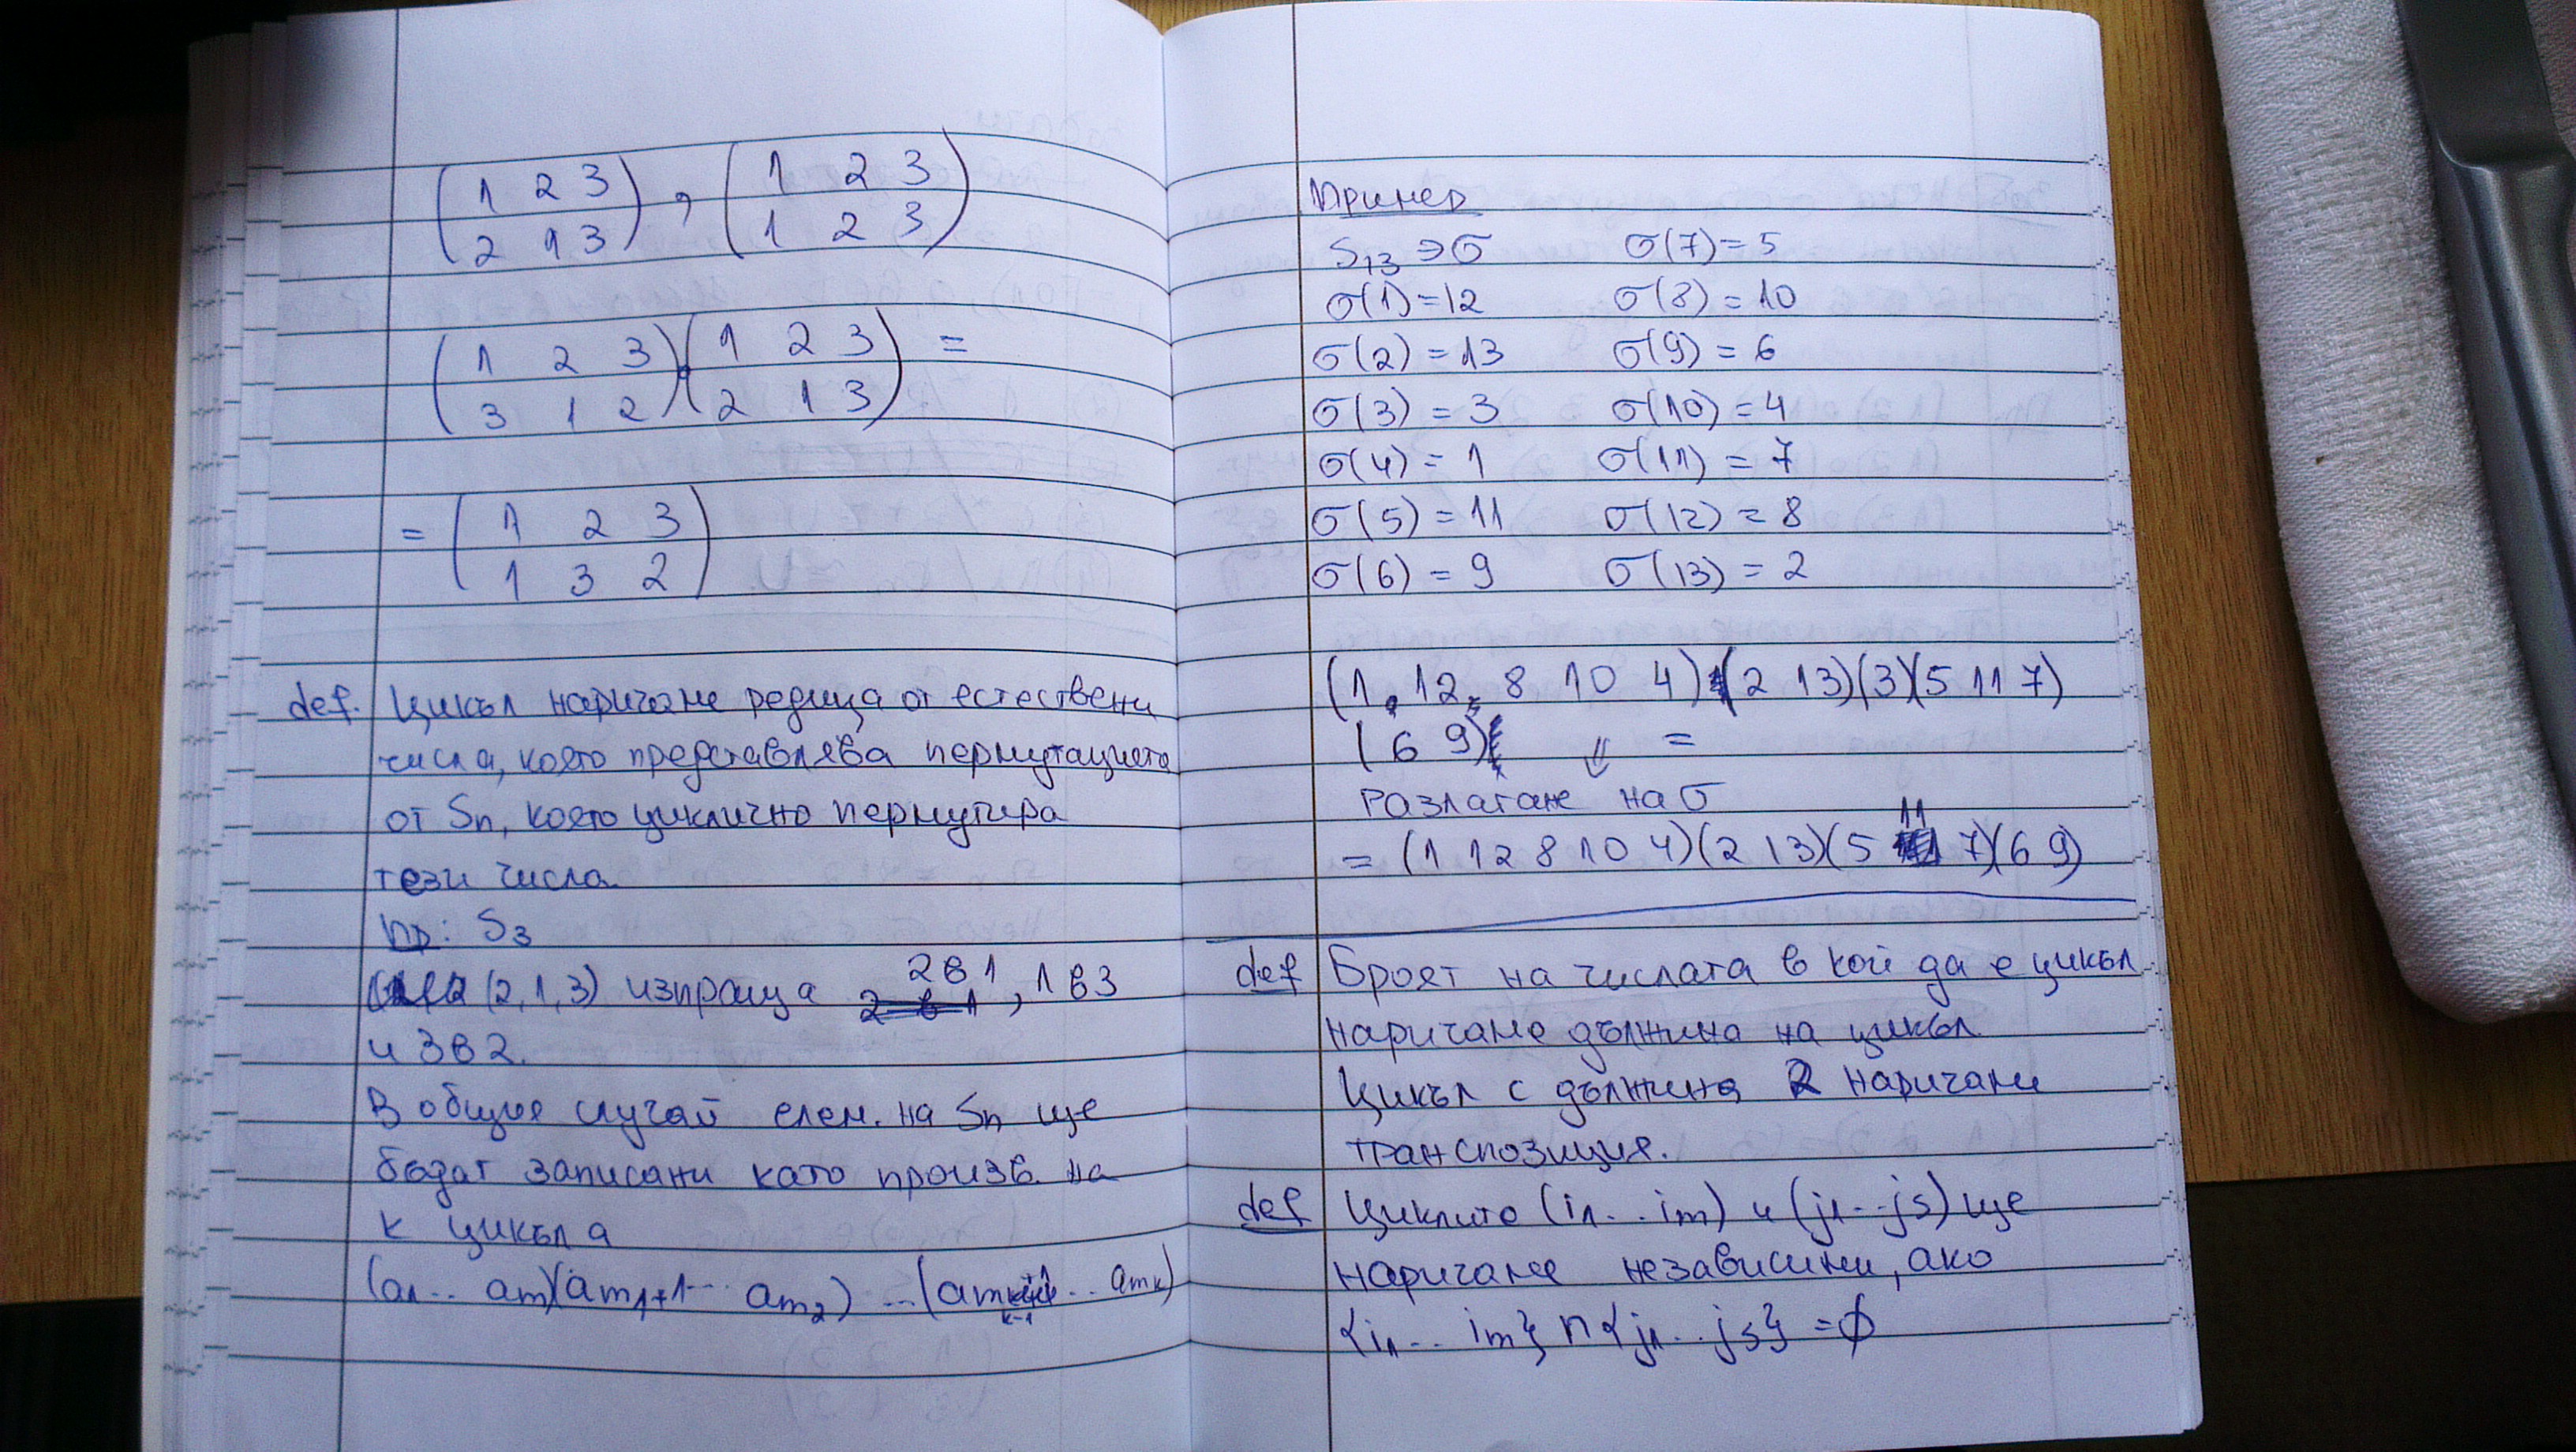 (1 2 3
2 1 3) , (1 2 3
1 2 3)
(1 2 3
3 1 2) . (1 2 3
2 1 3) =
= (1 2 3
1 3 2)
def. Цикъл наричаме редица от естествени
числа, която представлява пермутацията
от Sn, която циклично пермутира
тези числа
Пр: S3
(2,1,3) изпраща 2 в 1, 1 в 3
и 3 в 2.
В общия случай елем. на Sn ще
бъдат записани като произв. на
к цикъла
(a1.. am)(am1+1... am2) ... (amk-1+1.. amk)
Пример
S13 ∋ σ σ(7) = 5
σ(1) = 12 σ(8) = 10
σ(2) = 13 σ(9) = 6
σ(3) = 3 σ(10) = 4
σ(4) = 1 σ(11) = 7
σ(5) = 11 σ(12) = 8
σ(6) = 9 σ(13) = 2
(1, 12, 8 10 4) (2 13)(3)(5 11 7)
(6 9) ⇓ =
Разлагане на σ
= (1 12 8 10 4)(2 13)(5 11 7)(6 9)
def Броят на числата в кой да е цикъл
наричаме дължина на цикъл
Цикъл с дължина 2 наричаме
транспозиция.
def Циклите (i1...im) и (j1...js) ще
наричаме независими, ако
{i1... im} ∩ {j1... js} = ∅